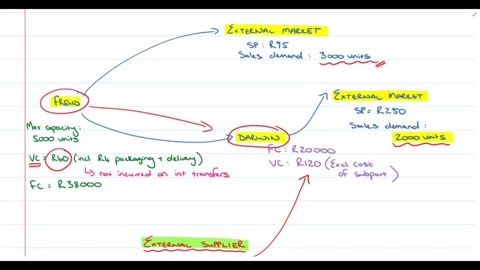 EXTERNAL MARKET
SP: R95
Sales demand: 3000 units
FREUD
EXTERNAL MARKET
SP= R250
Sales demand:
2000 units
Max capacity:
5000 units
DARWIN
VC = R60 (incl R4 packaging + delivery)
↳ not incurred on int transfers
FC = R38000
FC: R20000
VC: R120 (Excl cost
of subpart)
EXTERNAL SUPPLIER